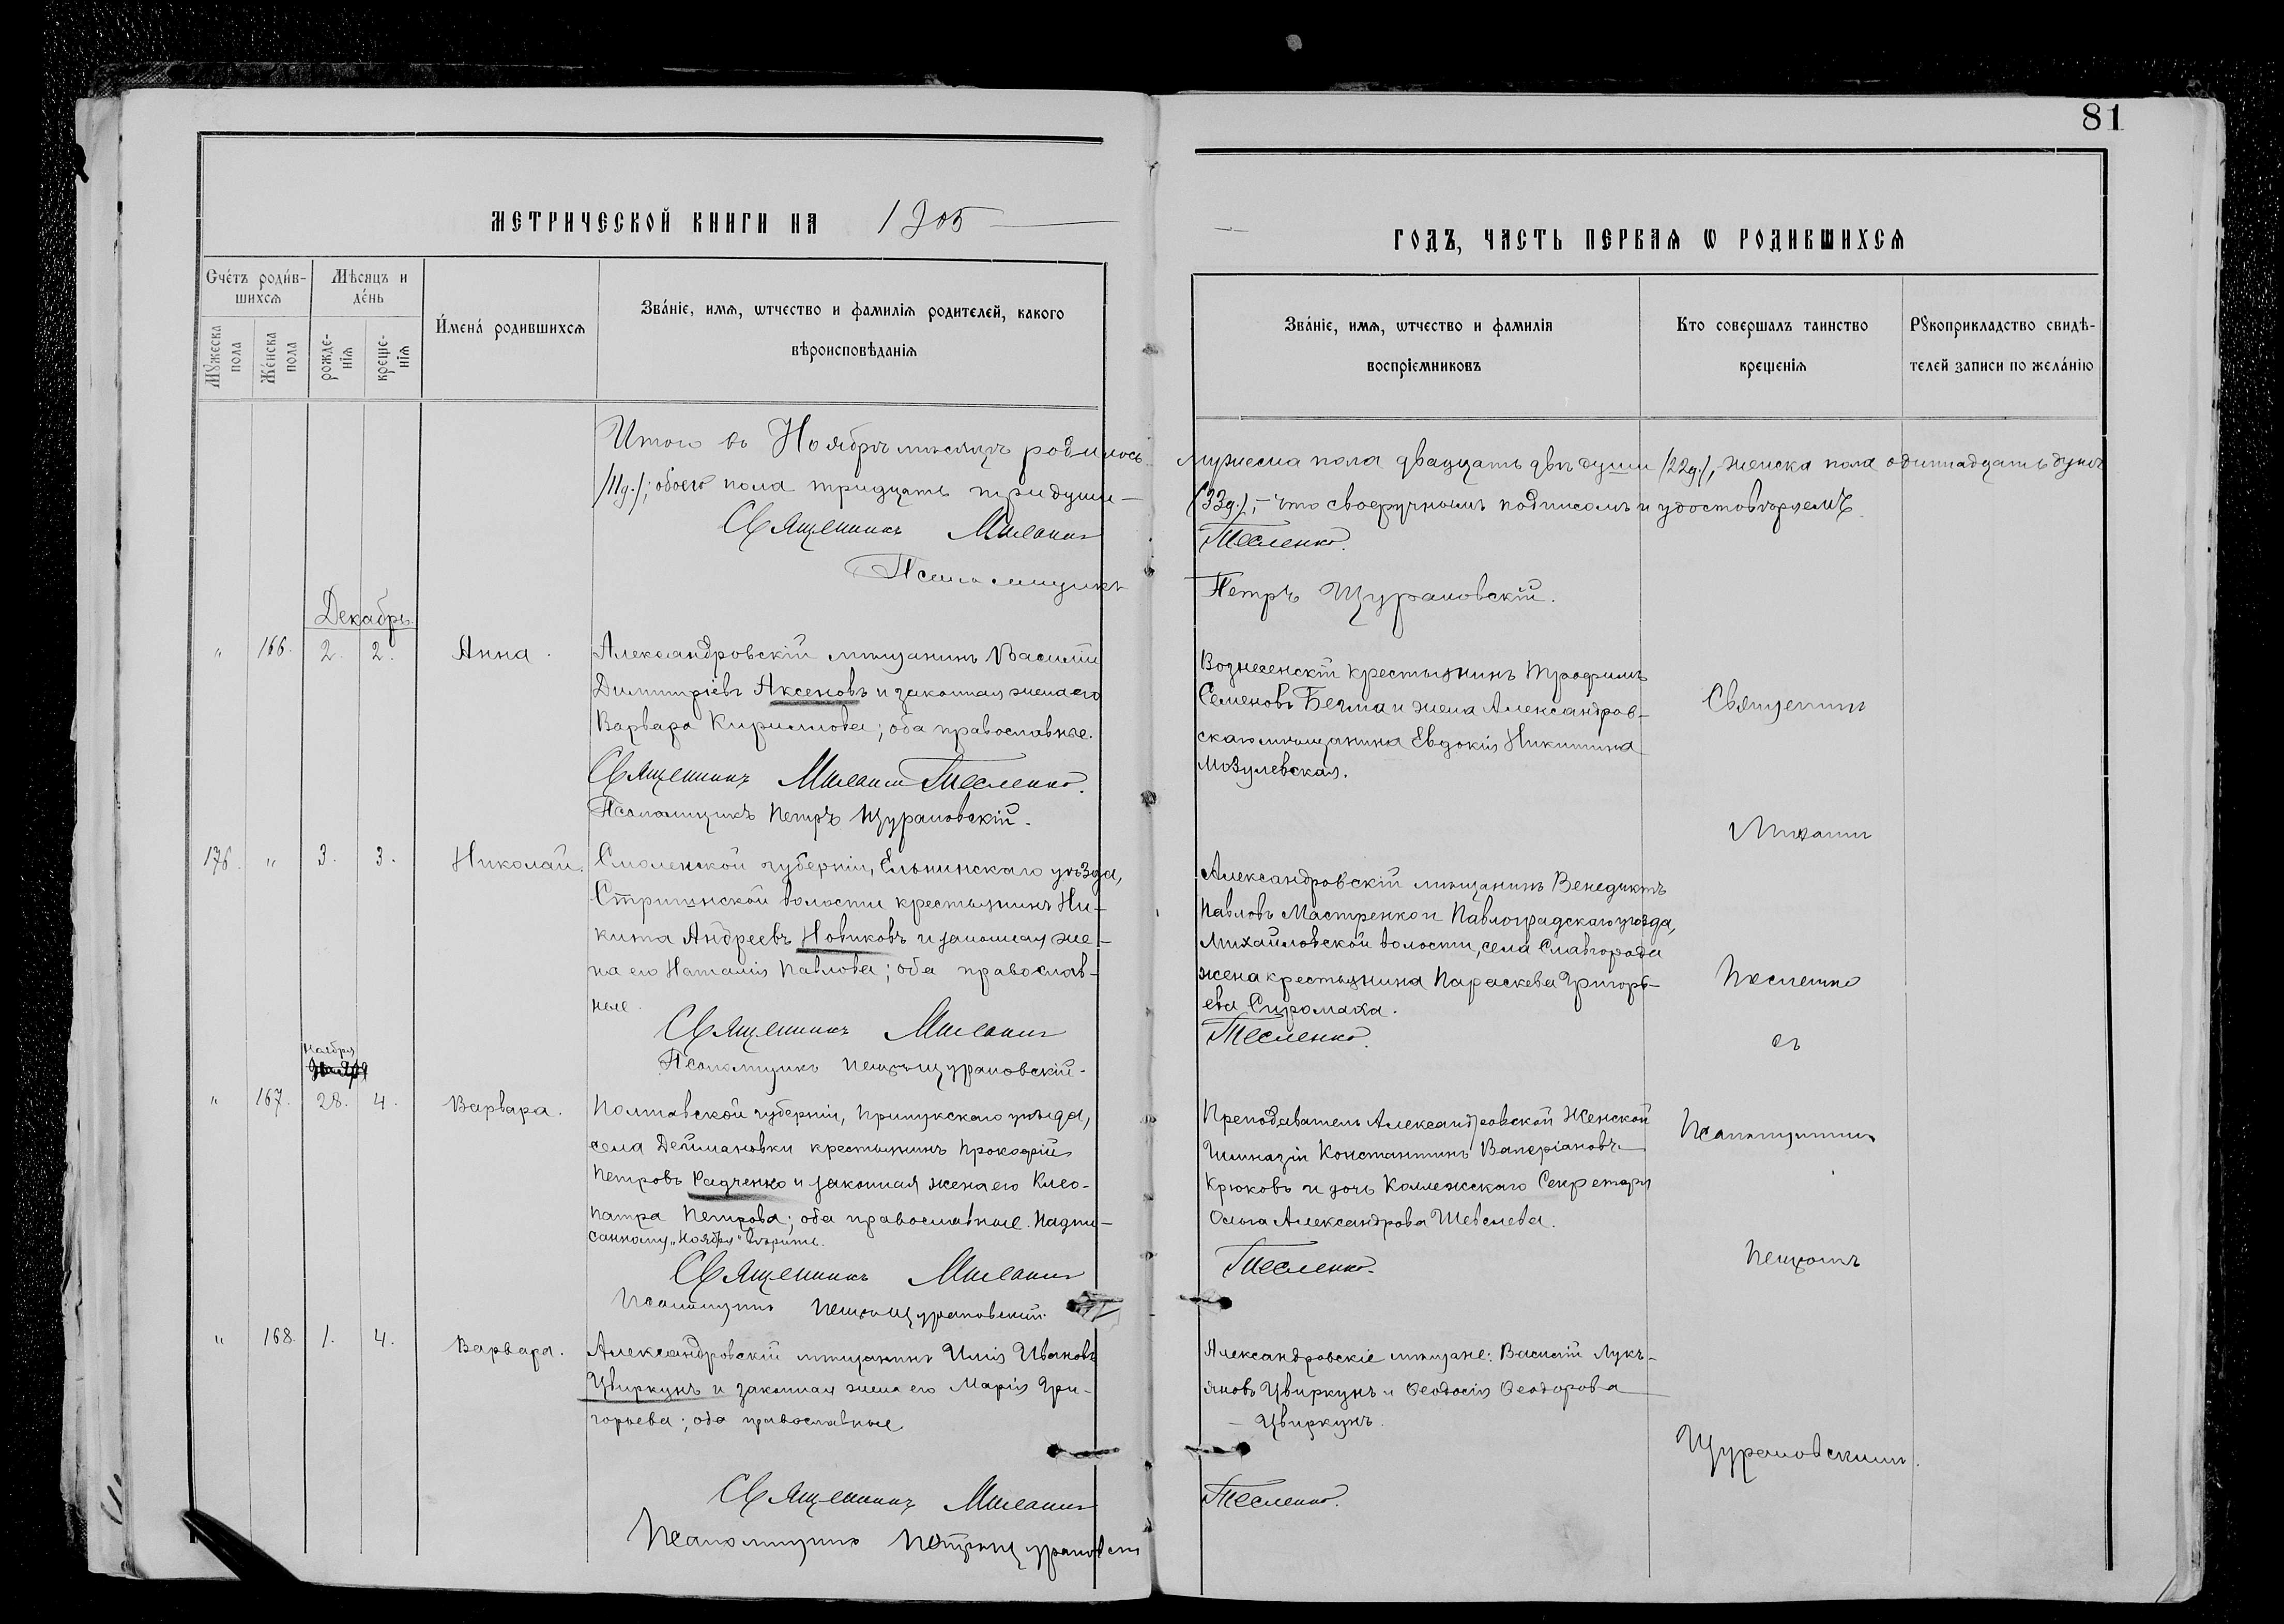 81
МЕТРИЧЕСКОЙ КНИГИ НА 1905
ГОДЪ, ЧАСТЬ ПЕРВАЯ Ѡ РОДИВШИХСЯ
Счетъ родив-
шихся
Мѣсяцъ и
день
Мужеска
пола
Женска
пола
рожде-
нія
креще-
нія
Имена родившихся
Званіе, имя, ѿтчество и фамилія родителей, какого
вѣроисповѣданія
Званіе, имя, ѿтчество и фамилія
воспріемниковъ
Кто совершалъ таинство
крещенія
Рукоприкладство свидѣ-
телей записи по желанію
Итого въ Ноябрѣ мѣсяцѣ родилось мужеска пола двадцать двѣ души /22д./, женска пола одиннадцать душъ
/11д./; обоего пола тридцать три души — /33д./, — что своеручнымъ подписомъ и удостовѣряемъ
Священникъ Михаилъ Тесленко.
Псаломщикъ Петръ Щурановскій.
Декабрь.
" 166. 2. 2. Анна.
Александровскій мѣщанинъ Василій
Димитріевъ Аксеновъ и законная жена его
Варвара Кириллова; оба православные.
Священникъ Михаилъ Тесленко.
Псаломщикъ Петръ Щурановскій.
Вознесенскій крестьянинъ Трофимъ
Семеновъ Бегма и жена Александров-
скаго мѣщанина Евдокія Никитина
Мозулевская.
176. " 3. 3. Николай.
Смоленской губерніи, Ельнинскаго уѣзда,
Стригинской волости крестьянинъ Ни-
кита Андреевъ Новиковъ и законная же-
на его Наталія Павлова; оба православ-
ные.
Священникъ Михаилъ
Псаломщикъ Петръ Щурановскій.
Александровскій мѣщанинъ Венедиктъ
Павловъ Мастренко и Павлоградскаго уѣзда,
Михайловской волости, села Славгорода
жена крестьянина Параскева Григорь-
ева Сиромаха.
Тесленко.
Ноября
" 167. 28. 4. Варвара.
Полтавской губерніи, Прилукскаго уѣзда,
села Деймановки крестьянинъ Прокофій
Петровъ Радченко и законная жена его Клео-
патра Петрова; оба православные. Надпи-
санному „Ноября" вѣрить.
Священникъ Михаилъ
Псаломщикъ Петръ Щурановскій.
Преподаватель Александровской Женской
Гимназіи Константинъ Валеріановъ
Крюковъ и дочь Коллежскаго Секретаря
Ольга Александрова Шевелева.
Тесленко.
" 168. 1. 4. Варвара.
Александровскій мѣщанинъ Илія Ивановъ
Цвиркунъ и законная жена его Марія Гри-
горьева; оба православные
Священникъ Михаилъ
Псаломщикъ Петръ Щурановскій
Александровскіе мѣщане: Василій Лукь-
яновъ Цвиркунъ и Ѳеодосія Ѳеодорова
— Цвиркунъ.
Тесленко.
Священникъ
Михаилъ
Тесленко
съ
Псаломщикомъ
Петромъ
Щурановскимъ.